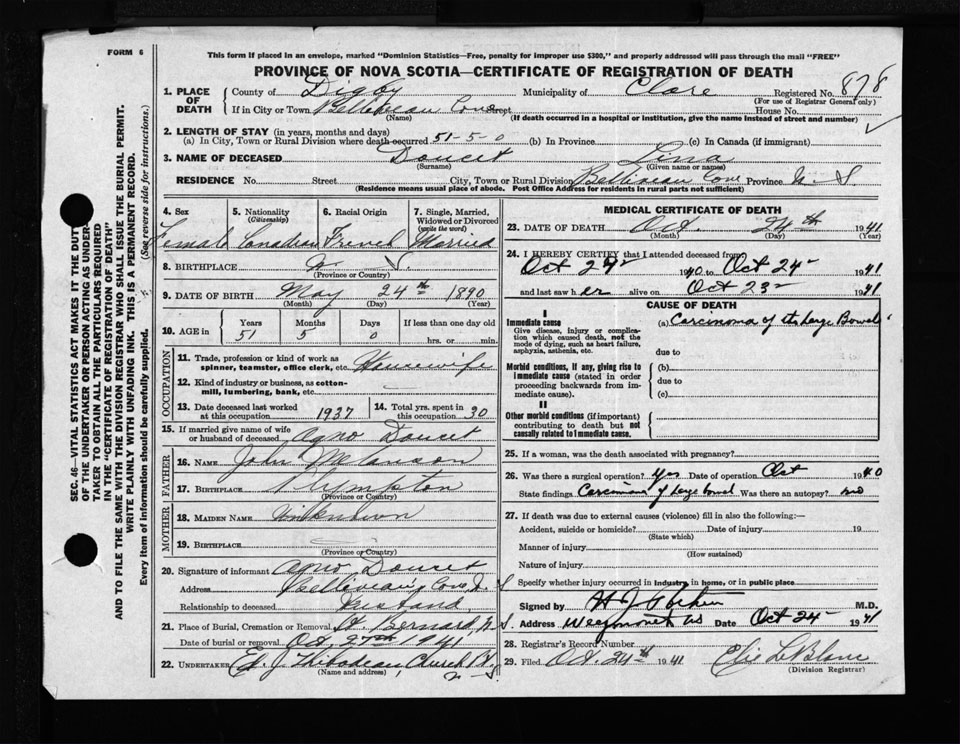 FORM 6
This form if placed in an envelope, marked "Dominion Statistics—Free, penalty for improper use $300," and properly addressed will pass through the mail "FREE"
PROVINCE OF NOVA SCOTIA—CERTIFICATE OF REGISTRATION OF DEATH
1. PLACE OF DEATH County of Digby Municipality of Clare Registered No. 878
(For use of Registrar General only)
If in City or Town Belliveau Cove Street House No.
(Name) (If death occurred in a hospital or institution, give the name instead of street and number)
2. LENGTH OF STAY (in years, months and days)
(a) In City, Town or Rural Division where death occurred 51-5-0 (b) In Province (c) In Canada (if immigrant)
3. NAME OF DECEASED Doucet Lina
(Surname) (Given name or names)
RESIDENCE No. Street City, Town or Rural Division Belliveau Cove Province N S
(Residence means usual place of abode. Post Office Address for residents in rural parts not sufficient)
SEC. 46—VITAL STATISTICS ACT MAKES IT THE DUTY
OF THE UNDERTAKER OR PERSON ACTING AS UNDER-
TAKER TO OBTAIN ALL THE PARTICULARS REQUIRED
IN THE "CERTIFICATE OF REGISTRATION OF DEATH"
AND TO FILE THE SAME WITH THE DIVISION REGISTRAR WHO SHALL ISSUE THE BURIAL PERMIT.
WRITE PLAINLY WITH UNFADING INK. THIS IS A PERMANENT RECORD.
Every item of information should be carefully supplied. (See reverse side for instructions.)
4. Sex 5. Nationality (Citizenship) 6. Racial Origin 7. Single, Married, Widowed or Divorced (write the word)
Female Canadian French Married
8. BIRTHPLACE N. S.
(Province or Country)
9. DATE OF BIRTH May 24th 1890
(Month) (Day) (Year)
10. AGE in Years Months Days If less than one day old
51 5 0 hrs. or min.
OCCUPATION
11. Trade, profession or kind of work as spinner, teamster, office clerk, etc. Housewife
12. Kind of industry or business, as cotton-mill, lumbering, bank, etc.
13. Date deceased last worked at this occupation 1937 14. Total yrs. spent in this occupation 30
15. If married give name of wife or husband of deceased Agno Doucet
FATHER
16. NAME John
17. BIRTHPLACE Plympton
(Province or Country)
MOTHER
18. MAIDEN NAME Unknown
19. BIRTHPLACE
(Province or Country)
20. Signature of informant Agno Doucet
Address Belliveau Cove N. S
Relationship to deceased Husband
21. Place of Burial, Cremation or Removal St. Bernard, N.S.
Date of burial or removal Oct, 27th 1941
22. UNDERTAKER Ed. J. Thibodeau, Church Pt.
(Name and address) N. S
MEDICAL CERTIFICATE OF DEATH
23. DATE OF DEATH Oct. 24th 1941
(Month) (Day) (Year)
24. I HEREBY CERTIFY that I attended deceased from
Oct 1940 to Oct 24 1941
and last saw her alive on Oct 23 1941
CAUSE OF DEATH
I
Immediate cause (a) Carcinoma of the large Bowel
Give disease, injury or complication which caused death, not the mode of dying, such as heart failure, asphyxia, asthenia, etc.
due to
Morbid conditions, if any, giving rise to immediate cause (stated in order proceeding backwards from immediate cause).
(b)
due to
(c)
II
Other morbid conditions (if important) contributing to death but not causally related to immediate cause.
25. If a woman, was the death associated with pregnancy?
26. Was there a surgical operation? Yes Date of operation Oct 1940
State findings Carcinoma of large bowel Was there an autopsy? no
27. If death was due to external causes (violence) fill in also the following:—
Accident, suicide or homicide? Date of injury 19
(State which)
Manner of injury
(How sustained)
Nature of injury
Specify whether injury occurred in industry, in home, or in public place
Signed by M.D.
Address Weymouth NS Date Oct 24 1941
28. Registrar's Record Number
29. Filed Oct. 24th 1941 LeBlanc
(Division Registrar)